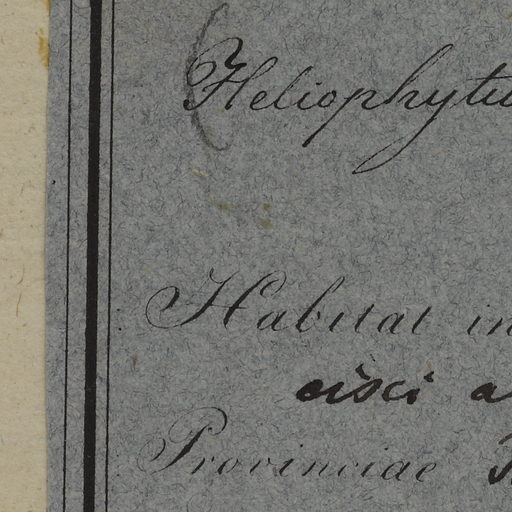 (Heliophytu
Habitat in
cisci a
Provinciae